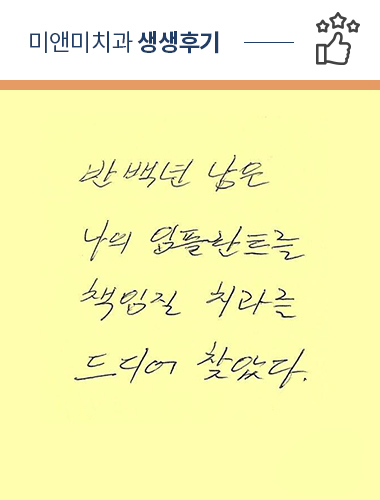 미앤미치과 생생후기
반백년 남은
나의 임플란트를
책임질 치과를
드디어 찾았다.